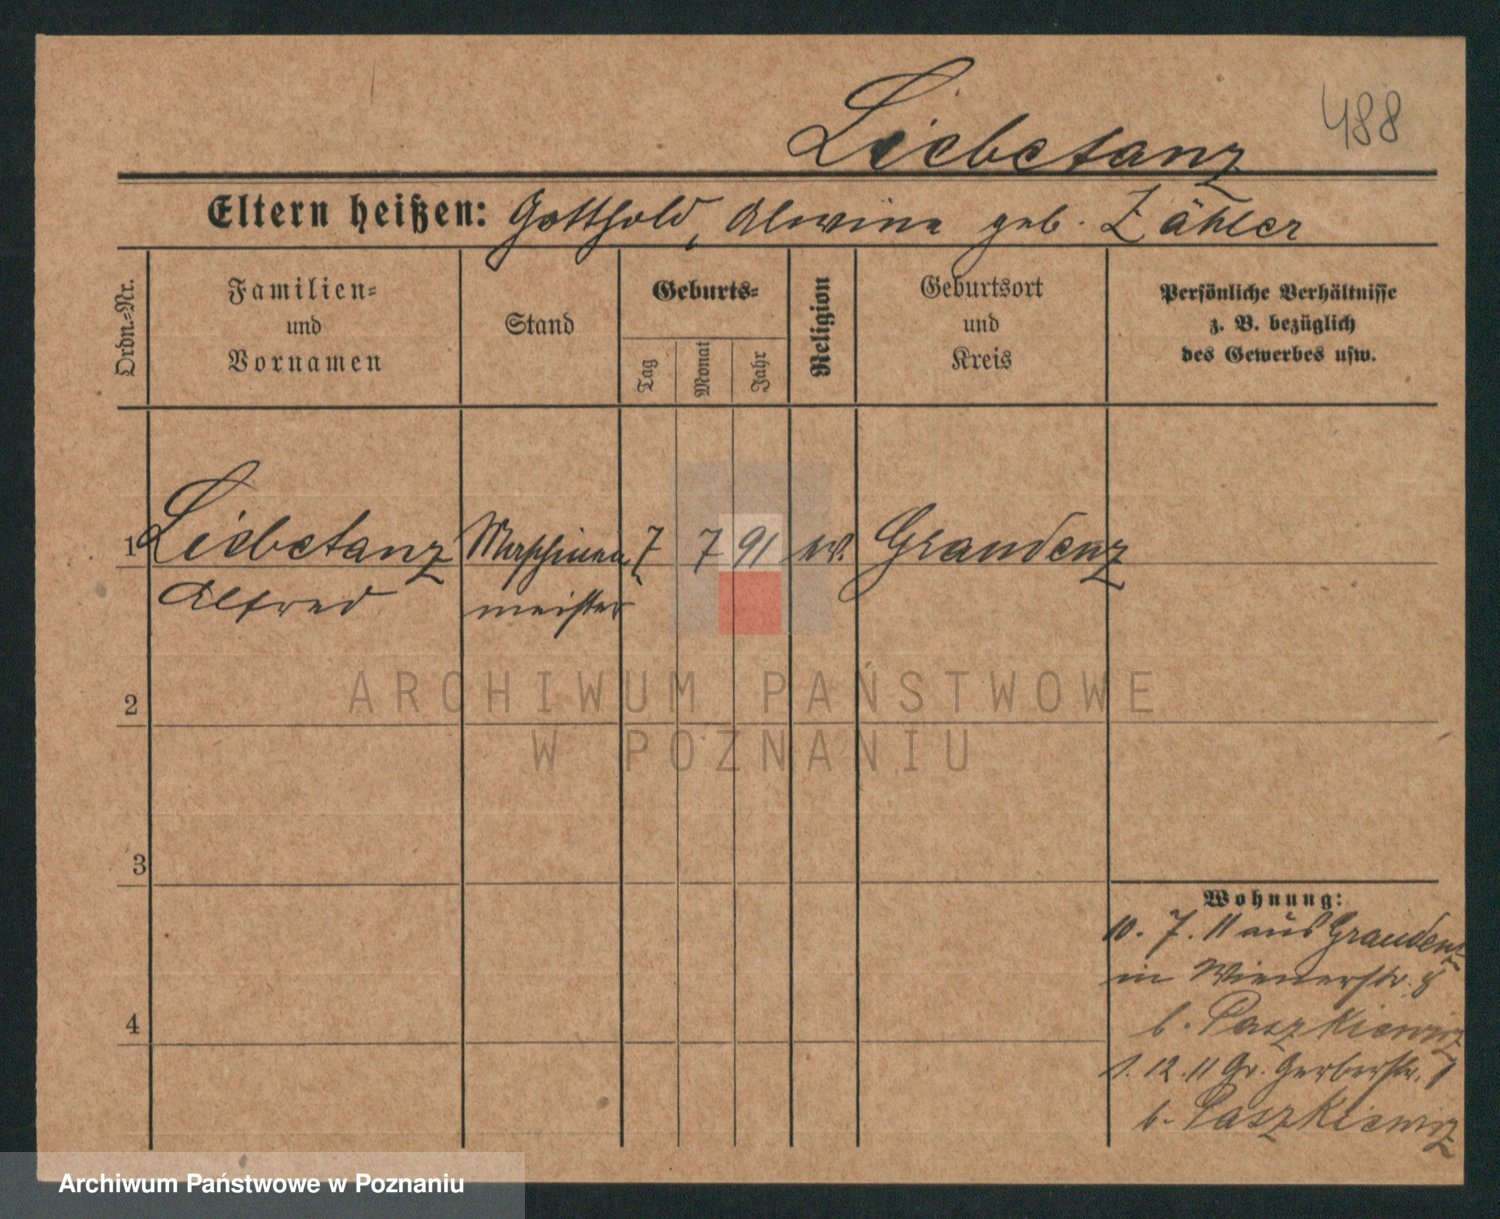 488
Liebetanz
Eltern heißen: Gotthold, Alwine geb. Zähler
Ordn.=Nr.
Familien=
und
Vornamen
Stand
Geburts=
Tag
Monat
Jahr
Religion
Geburtsort
und
Kreis
Persönliche Verhältnisse
z. B. bezüglich
des Gewerbes usw.
1 Liebetanz Maschinen 7 7 91 ev. Graudenz
Alfred meister
2
3
4
Wohnung:
10. 7. 11 aus Graudenz
in Wienerstr. 8
b. Paszkiewicz
1. 12. 11 Gr. Gerberstr. 1
b. Paszkiewicz
ARCHIWUM PAŃSTWOWE
W POZNANIU
Archiwum Państwowe w Poznaniu